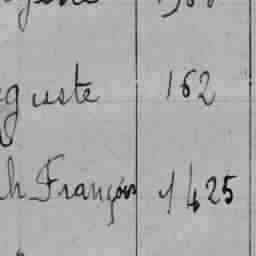 guste 162
h François 1425